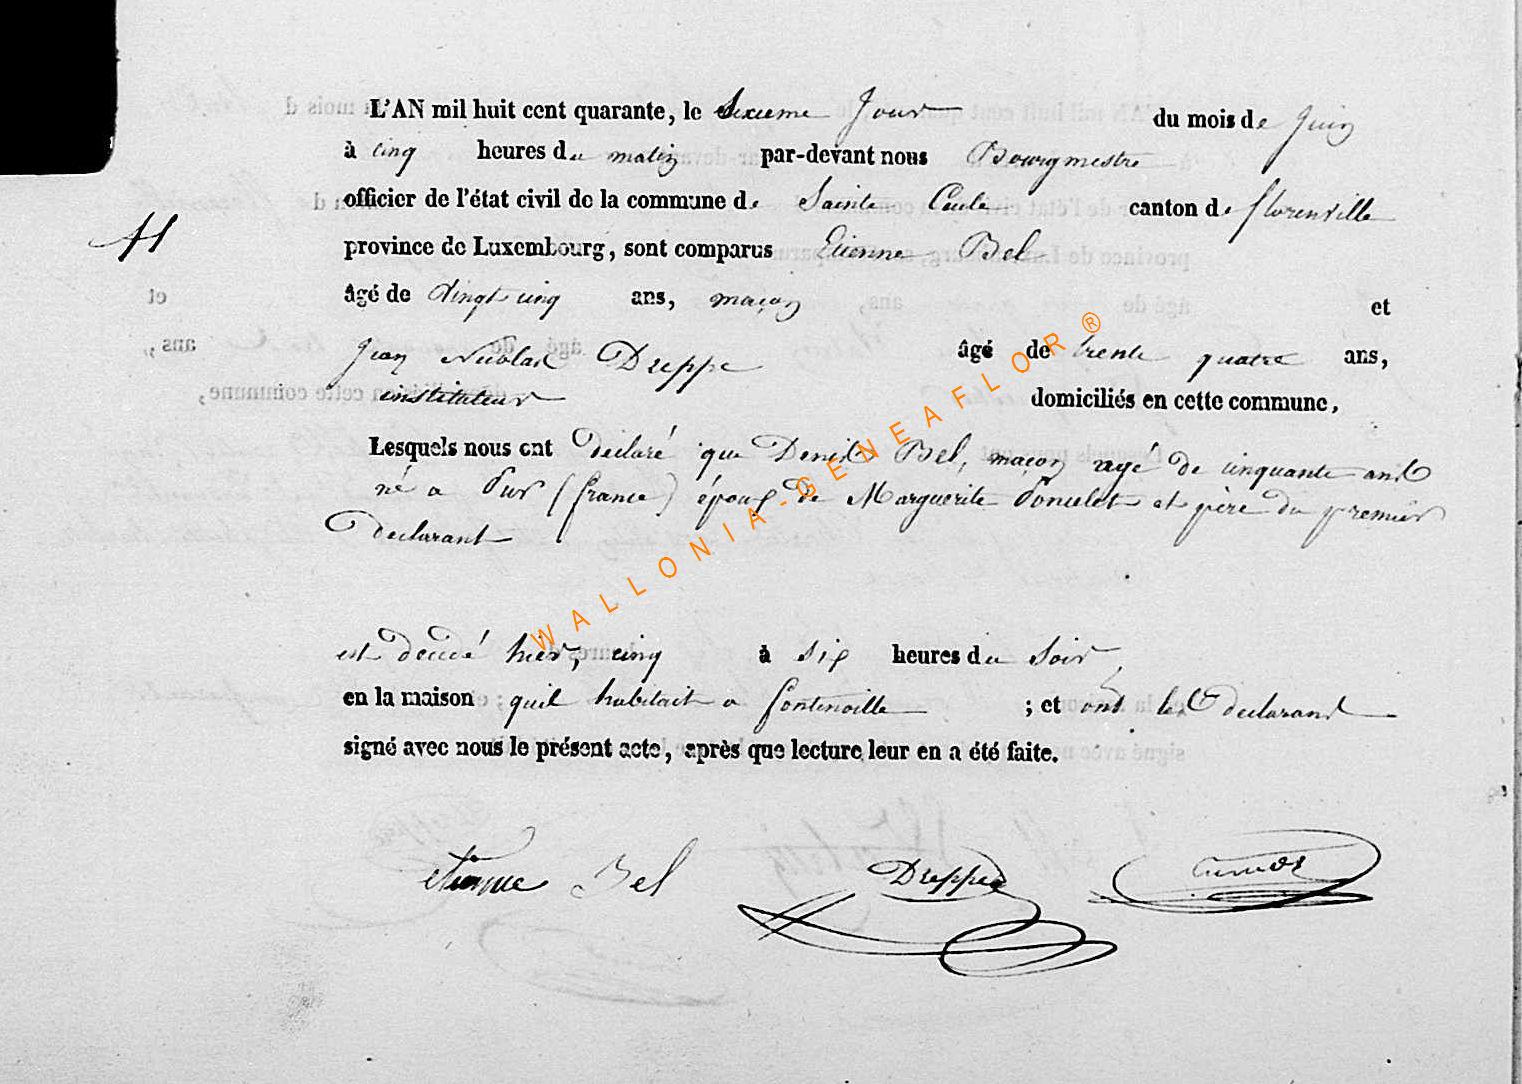 L'AN mil huit cent quarante, le sixieme Jour du mois de Juin
à cinq heures du matin par-devant nous Bourgmestre
officier de l'état civil de la commune de Sainte Cecile canton de florenville
11
province de Luxembourg, sont comparus Etienne Bel
âgé de Vingt cinq ans, maçon et
Jean Nicolas Dreppe âgé de trente quatre ans,
instituteur domiciliés en cette commune,
Lesquels nous ont declaré que Denis Bel, maçon agé de cinquante ans
né a Pur (france) époux de Marguerite Poncelet et père du premier
declarant
est décedé hier, cinq à six heures du soir,
en la maison quil habitait a fontenoille ; et ont les declarans
signé avec nous le présent acte, après que lecture leur en a été faite.
etienne Bel Dreppe
WALLONIA-GENEAFLOR®